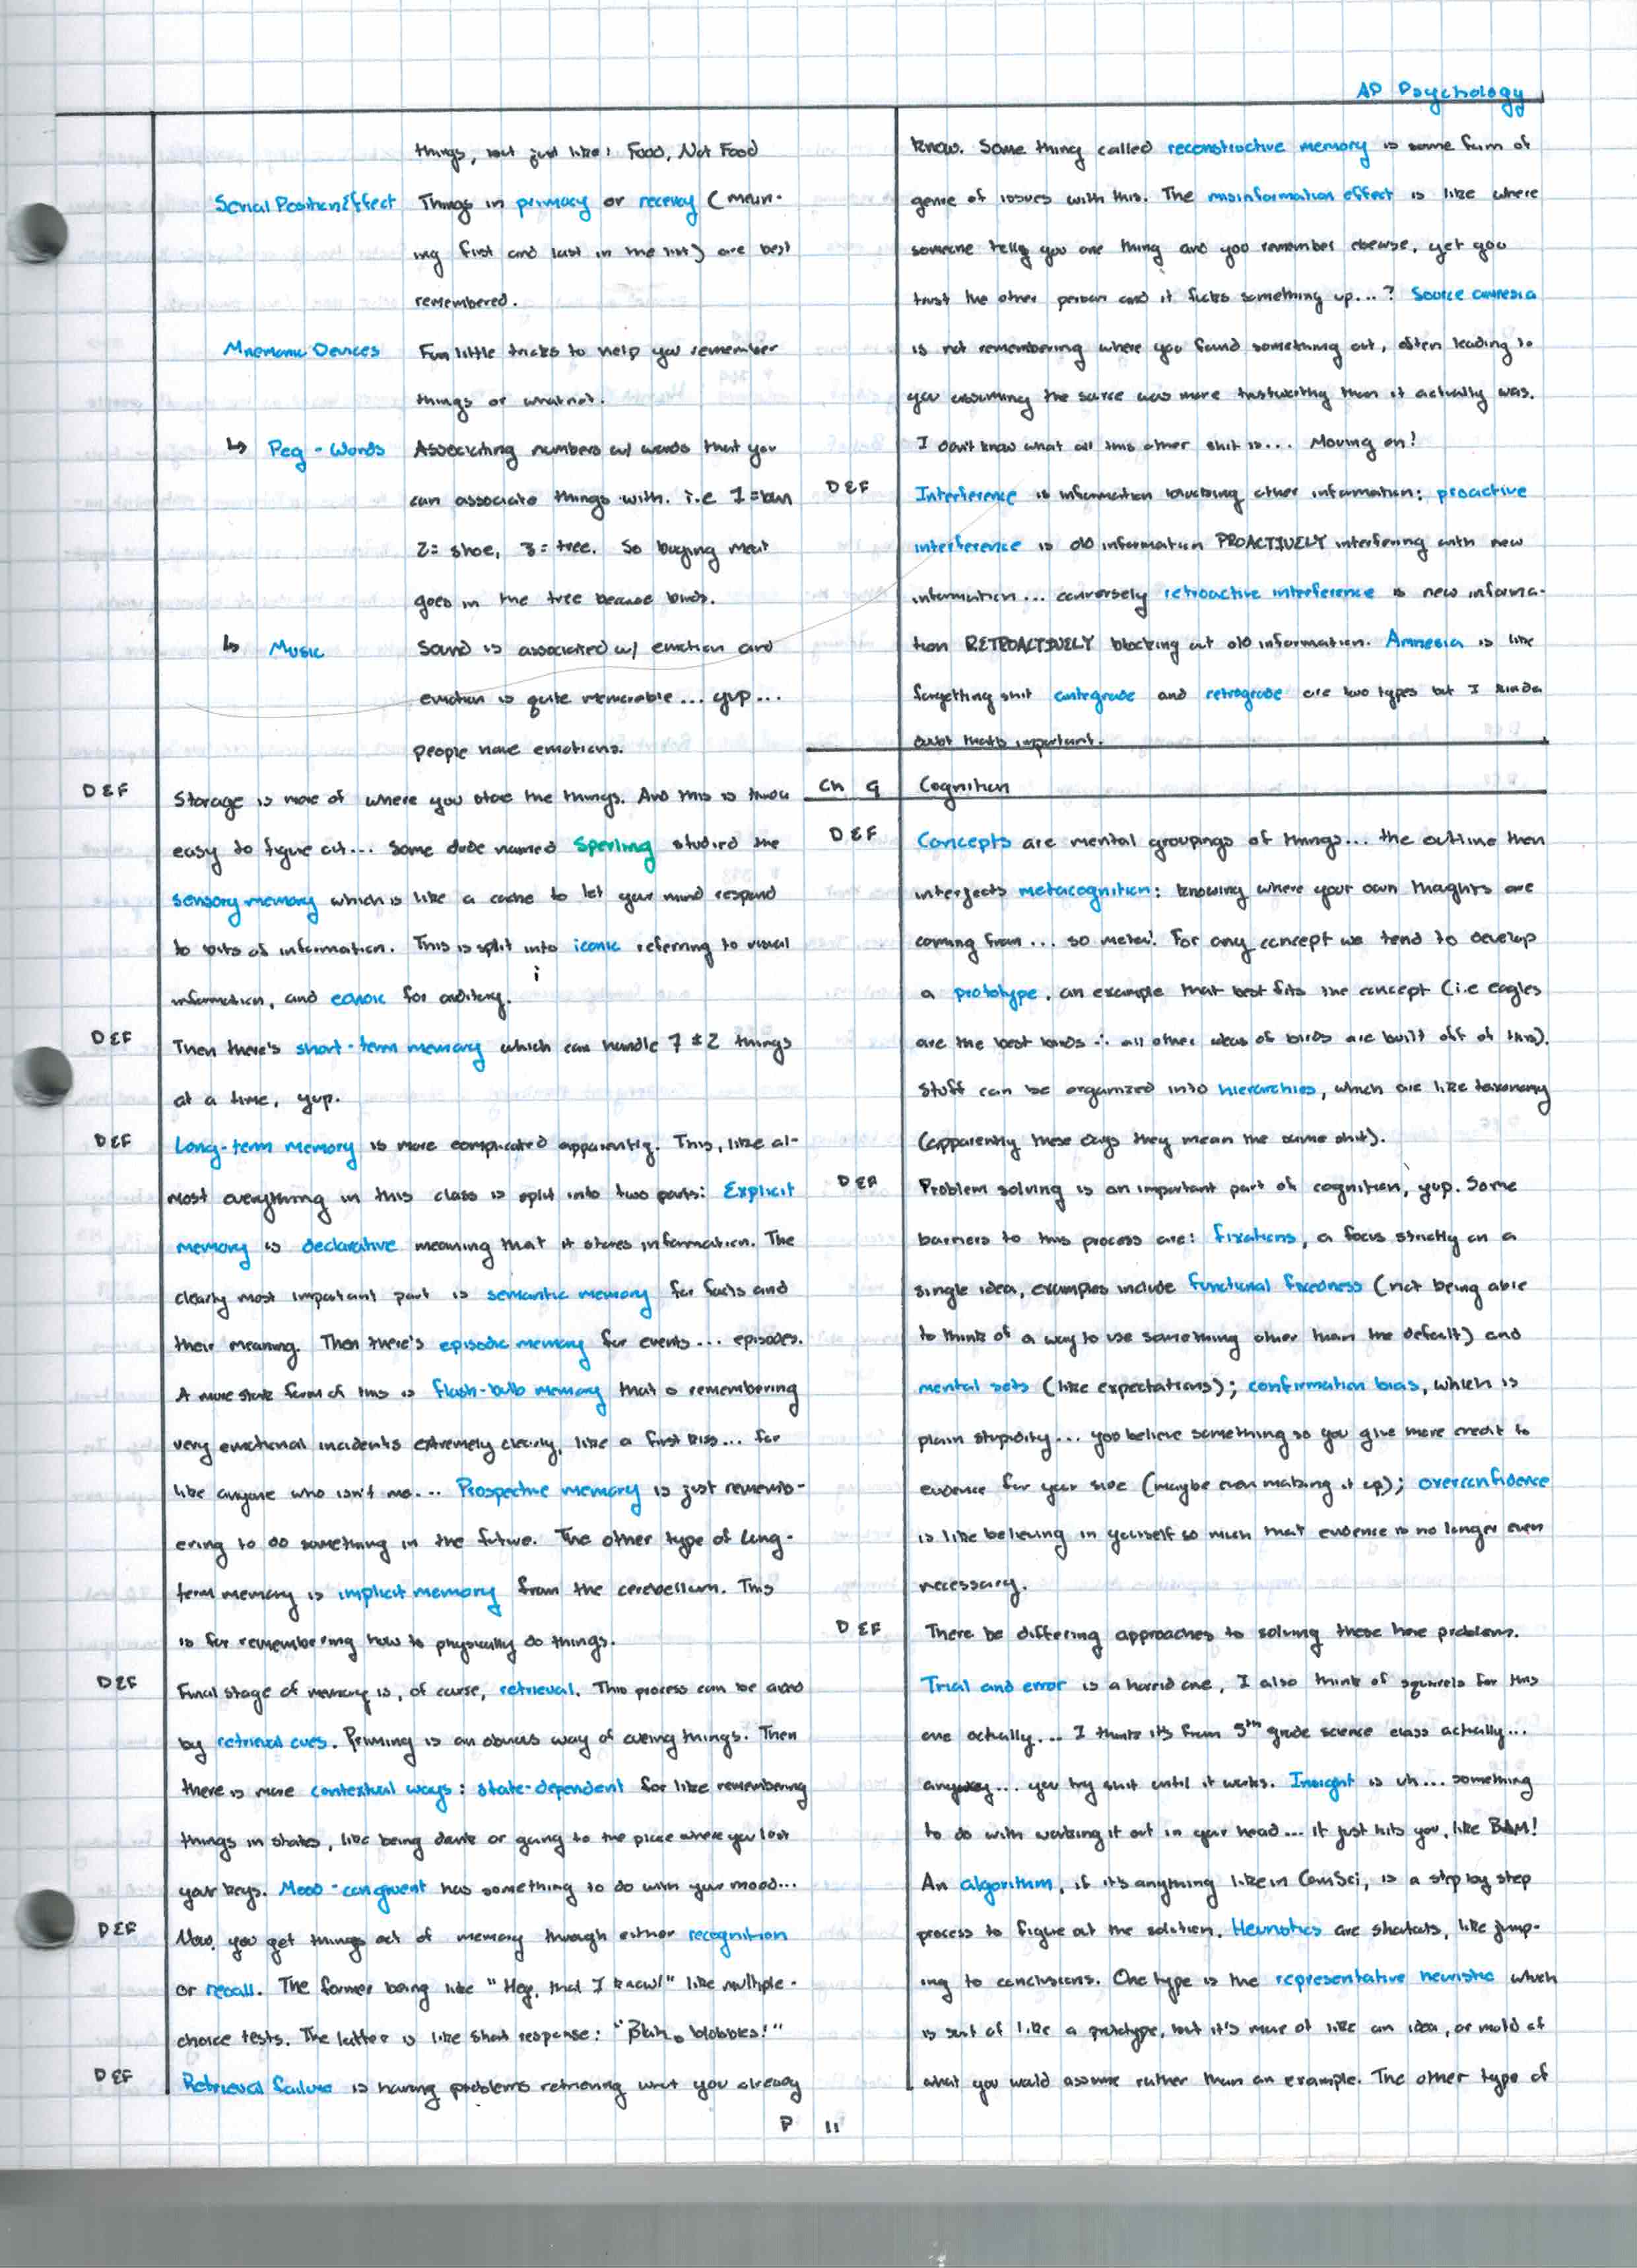 AP Psychology
things, but just like: Food, Not Food
Serial Position Effect Things in primacy or recency (mean-
ing first and last in the list) are best
remembered.
Mnemonic Devices Fun little tricks to help you remember
things or whatnot.
↳ Peg-Words Associating numbers w/ words that you
can associate things with. i.e 1=bun
2= shoe, 3= tree. So buying meat
goes in the tree because birds.
↳ Music Sound is associated w/ emotion and
emotion is quite memorable... yup...
people have emotions.
DEF Storage is more of where you store the things. And this is
easy to figure out... Some dude named Sperling studied the
sensory memory which is like a cache to let your mind respond
to bits of information. This is split into iconic referring to visual
information, and echoic for auditory.
DEF Then there's short-term memory which can handle 7±2 things
at a time, yup.
DEF Long-term memory is more complicated apparently. This, like al-
most everything in this class is split into two parts: Explicit
memory is declarative meaning that it stores information. The
clearly most important part is semantic memory for facts and
their meaning. Then there's episodic memory for events... episodes.
A more form of this is flash-bulb memory that is remembering
very emotional incidents extremely clearly, like a first kiss... for
like anyone who isn't me... Prospective memory is just rememb-
ering to do something in the future. The other type of long-
term memory is implicit memory from the cerebellum. This
is for remembering how to physically do things.
DEF Final stage of memory is, of course, retrieval. This process can be aided
by retrieval cues. Priming is an obvious way of cueing things. Then
there is more contextual ways: state-dependent for like remembering
things in states, like being drunk or going to the place where you lost
your keys. Mood-congruent has something to do with your mood...
DEF Now, you get things out of memory through either recognition
or recall. The former being like "Hey, that I know!" like multiple-
choice tests. The latter is like short response: "Blah, blobbles!"
DEF Retrieval failure is having problems retrieving what you already
know. Some thing called reconstructive memory is some form of
genre of issues with this. The misinformation effect is like where
someone tells you one thing and you remember otherwise, yet you
trust the other person and it fucks something up...? Source amnesia
is not remembering where you found something out, often leading to
you assuming the source was more trustworthy than it actually was.
I don't know what all this other shit is... Moving on!
DEF Interference is information blocking other information: proactive
interference is old information PROACTIVELY interfering with new
information... conversely retroactive interference is new informa-
tion RETROACTIVELY blocking out old information. Amnesia is like
forgetting shit antegrade and retrograde are two types but I kinda
doubt that's important.
Ch 9 Cognition
DEF Concepts are mental groupings of things... the outline then
interjects metacognition: knowing where your own thoughts are
coming from... so meta! For any concept we tend to develop
a prototype, an example that best fits the concept (i.e eagles
are the best birds ∴ all other ideas of birds are built off of this).
Stuff can be organized into hierarchies, which are like taxonomy
(apparently these days they mean the same shit).
DEF Problem solving is an important part of cognition, yup. Some
barriers to this process are: fixations, a focus strictly on a
single idea, examples include functional fixedness (not being able
to think of a way to use something other than the default) and
mental sets (like expectations); confirmation bias, which is
plain stupidity... you believe something so you give more credit to
evidence for your side (maybe even making it up); overconfidence
is like believing in yourself so much that evidence is no longer even
necessary.
DEF There be differing approaches to solving these here problems.
Trial and error is a horrid one, I also think of squirrels for this
one actually... I think it's from 5th grade science class actually...
anyway... you try shit until it works. Insight is uh... something
to do with working it out in your head... it just hits you, like BAM!
An algorithm, if it's anything like in ComSci, is a step by step
process to figure out the solution. Heuristics are shortcuts, like jump-
ing to conclusions. One type is the representative heuristic which
is sort of like a prototype, but it's more of like an idea, or mold of
what you would assume rather than an example. The other type of
P 11